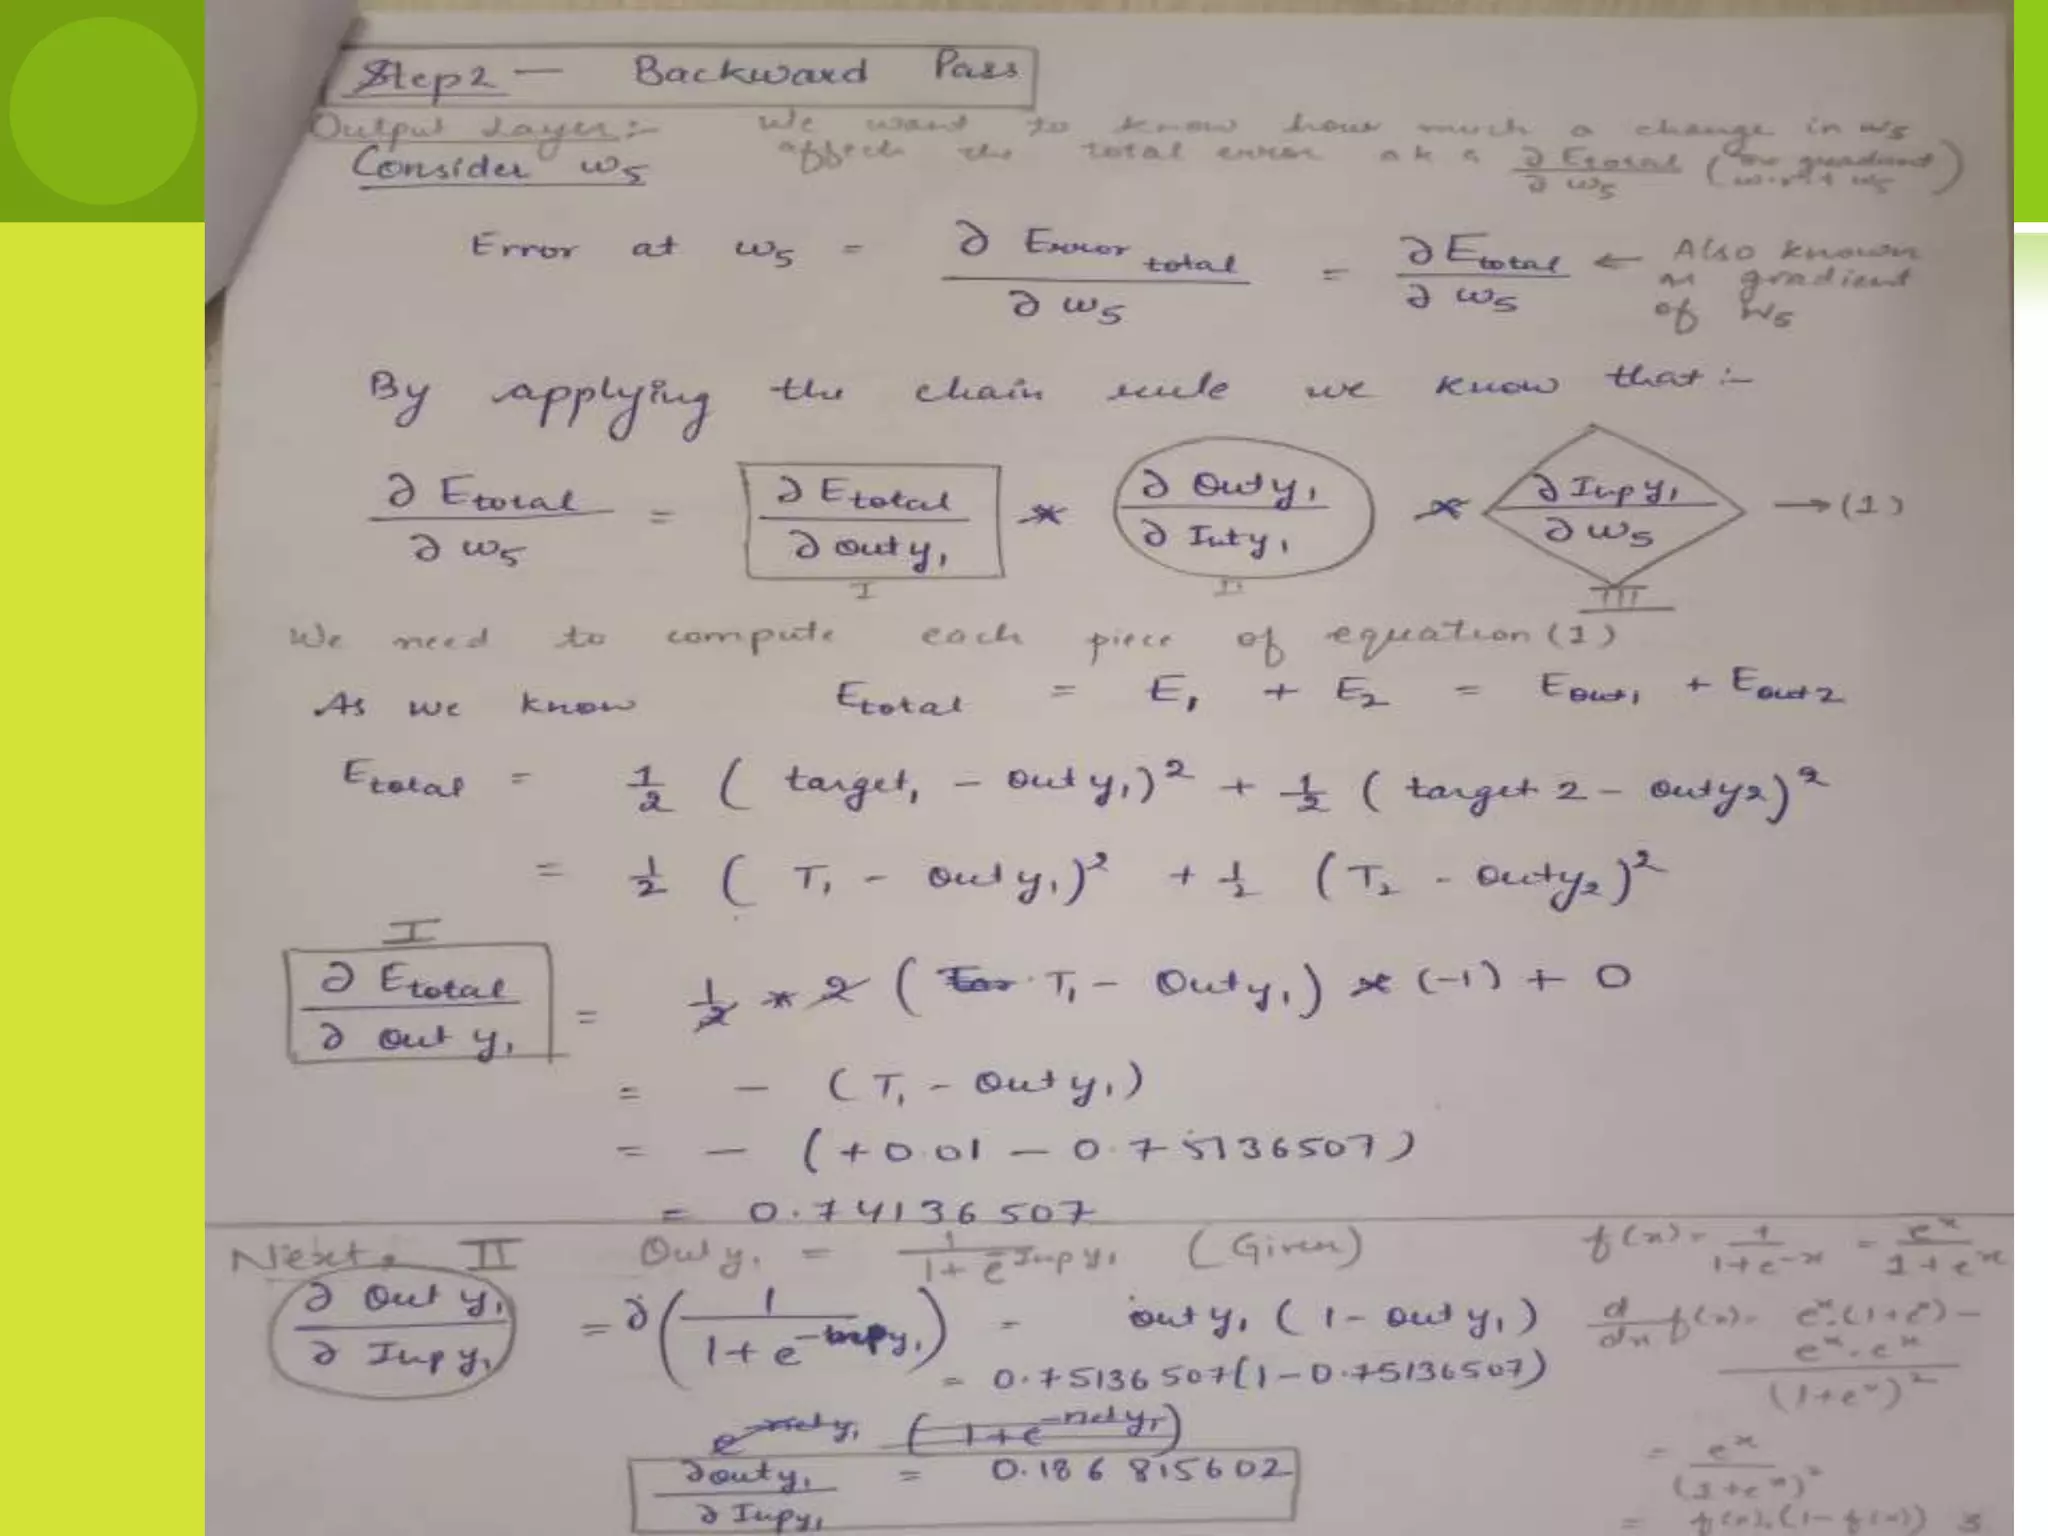 Step2 — Backward Pass
Output Layer:- We want to know how much a change in w5
affect the total error aka ∂ Etotal / ∂ w5 (the gradient w.r.t w5)
Consider w5
Error at w5 = ∂ Error total / ∂ w5 = ∂ Etotal / ∂ w5 ← Also known as gradient of W5
By applying the chain rule we know that :-
∂ Etotal / ∂ w5 = ∂ Etotal / ∂ out y1 * ∂ Out y1 / ∂ Int y1 * ∂ Inp y1 / ∂ w5 → (1)
I II III
We need to compute each piece of equation (1)
As we know Etotal = E1 + E2 = Eout1 + Eout2
Etotal = 1/2 ( target1 - out y1)² + 1/2 ( target 2 - outy2)²
= 1/2 ( T1 - out y1)² + 1/2 (T2 - outy2)²
I
∂ Etotal / ∂ out y1 = 1/2 * 2 ( T1 - Out y1) * (-1) + 0
= - (T1 - Out y1)
= - (+0.01 - 0.75136507)
= 0.74136507
Next, II Out y1 = 1 / 1+e^-Inp y1 (Given) f(x) = 1 / 1+e^-x = e^x / 1+e^x
∂ Out y1 / ∂ Inp y1 = ∂ ( 1 / 1+e^-inpy1 ) = out y1 ( 1 - out y1 ) d/dx f(x) = e^x.(1+e^x) - e^x.e^x / (1+e^x)²
= 0.75136507(1-0.75136507)
e^-net y1 (1+e^-net y1)
= e^x / (1+e^x)²
∂out y1 / ∂ Inpy1 = 0.186815602
= f(x).(1-f(x))